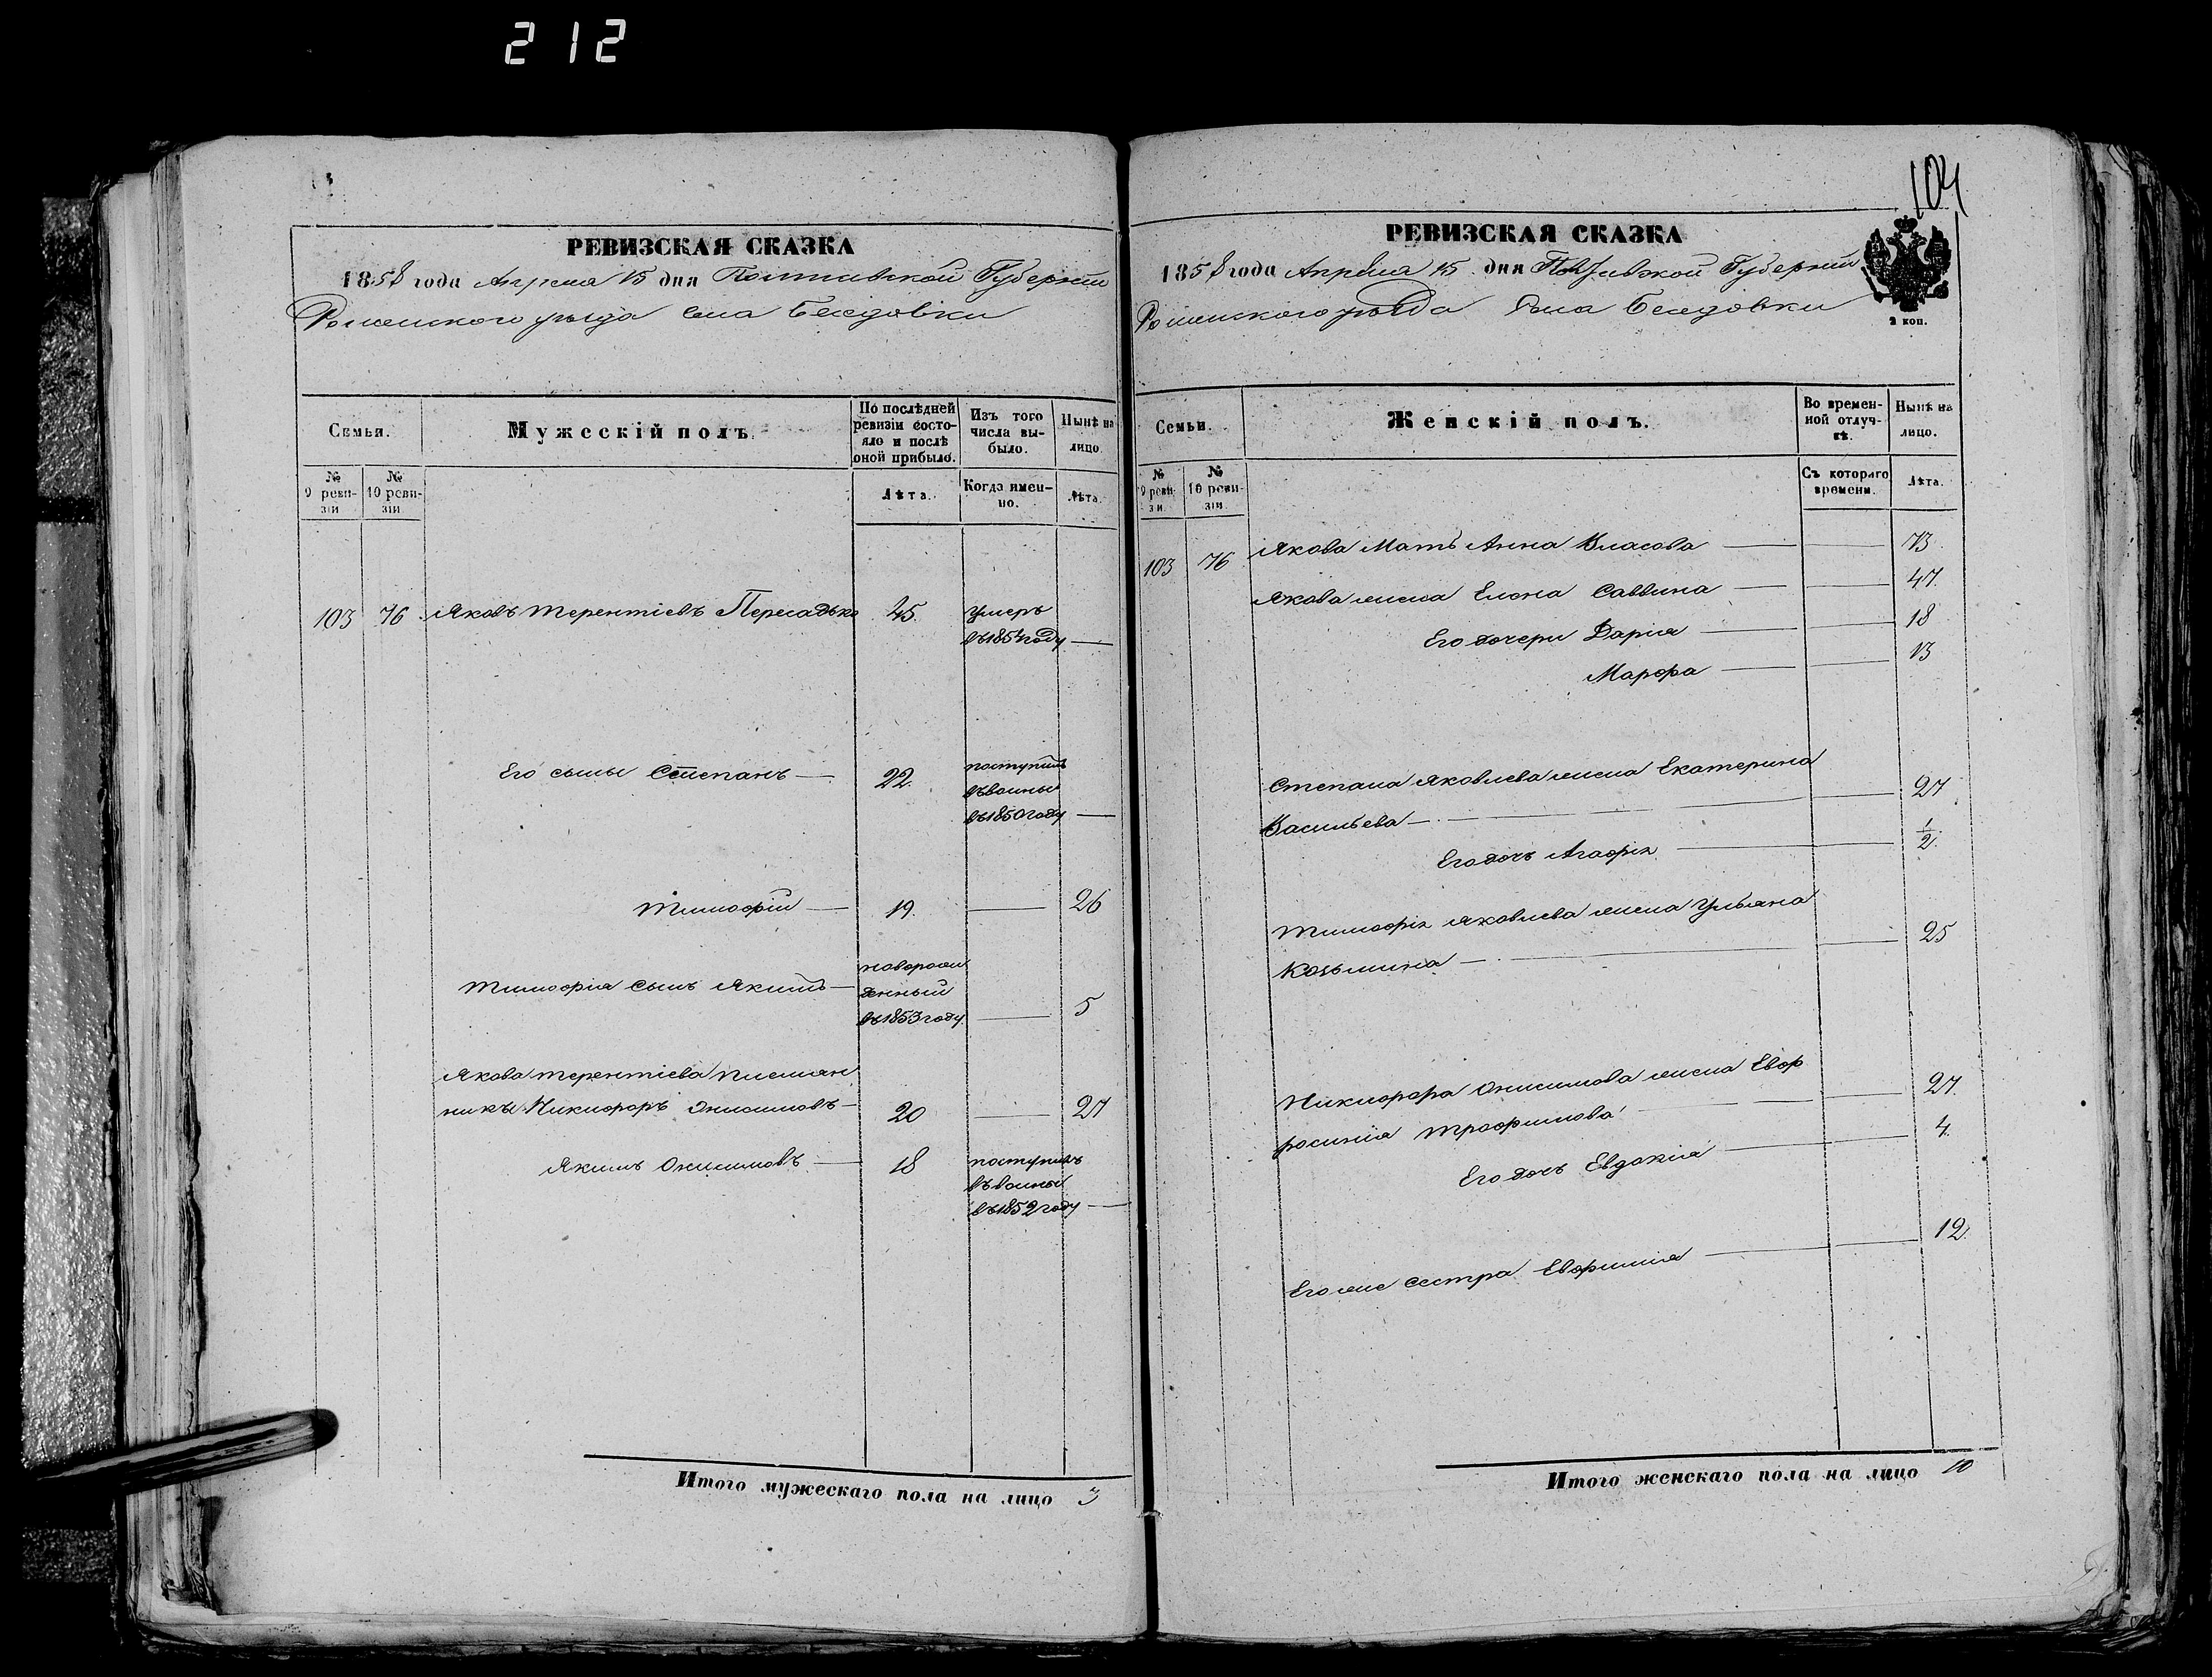 212
РЕВИЗСКАЯ СКАЗКА
1858 года Апреля 15 дня Полтавской Губернии
Роменского уезда села Беседовки
Семьи.
Мужескій полъ.
По послѣдней ревизіи состояло и послѣ оной прибыло.
Изъ того числа выбыло.
Нынѣ на лицо.
№ 9 ревизіи
№ 10 ревизіи.
Лѣта.
Когда именно.
Лѣта.
103 76 Яковъ Терентіевъ Пересадько 45. умеръ
въ 1854 году —
Его сыны Степанъ — 22. поступилъ
въ воины
въ 1850 году —
Тимофій — 19. — 26
новорож
Тимофія сынъ Якимъ — денный
въ 1853 году. — 5
Якова Терентіева племян
никъ Никифоръ Онисимовъ — 20 — 27
Якимъ Онисимовъ — 18 поступилъ
въ воины
въ 1852 году —
Итого мужескаго пола на лицо 3
104
РЕВИЗСКАЯ СКАЗКА
1858 года Апрѣля 15 дня Полтавской Губерніи
Роменского уѣзда Села Беседовки
2 коп.
Семьи.
Женскій полъ.
Во временной отлучкѣ.
Нынѣ на лицо.
№ 9 ревизіи.
№ 10 ревизіи.
Съ котораго времени.
Лѣта.
103 76 Якова Мать Анна Власова — 73.
Якова жена Елена Саввина — 47.
Его дочери Дарія — 18
Марфа — 13
Степана Яковлева жена Екатерина
Васильева — 27
Его дочь Агафія — 1/2.
Тимофія Яковлева жена Ульяна
Козьмина — 25
Никифора Онисимова жена Евф
росинія Трофимова — 27.
Его дочь Евдокія — 4.
Его же сестра Евфимія — 12.
Итого женскаго пола на лицо 10